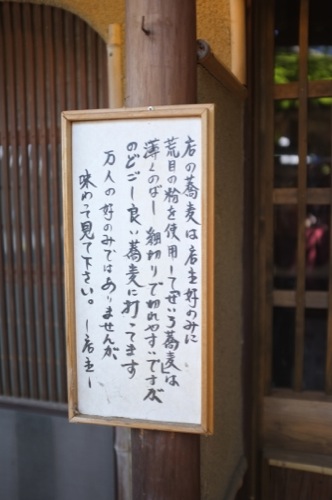 店の蕎麦は店主好のみに
荒目の粉を使用して「せいろ蕎麦」は
薄くのばし 細切りで切れやすいですが
のどごし良い蕎麦に打ってます
万人の好のみではありませんが
味わって見て下さい。 ー店主ー